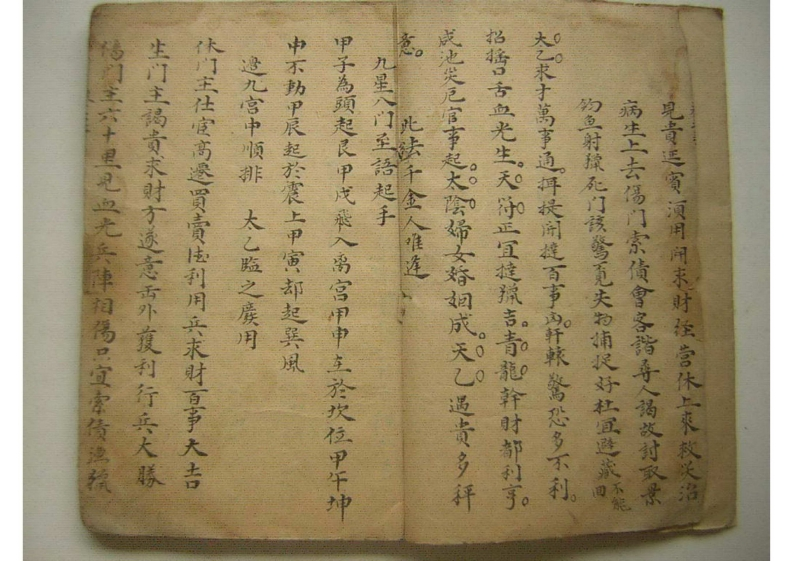 見貴迎賓須用開求財經營休上來救災治
病生上去傷門索債會客諧尋人謁故討取景
釣魚射獵死門該驚覓失物捕捉好杜宜避藏不能回
太乙求才萬事通。提開撻百事凶軒轅驚恐多不利。
招搖口舌血光生。天符正宜撻獵吉。青龍幹財都利亨。
咸池災厄官事起。太陰婦女婚姻成。天乙遇貴多秤
意。 此法千金人唯達
九星八門至語起手
甲子為頭起艮甲戌飛入离宮甲申在於坎位甲午坤
中不動甲辰起於震上甲寅却起巽風
逆九宮中順排 太乙臨之處用
休門主仕宦高遷買賣德利用兵求財百事大吉
生門主謁貴求財方遂意出外獲利行兵大勝
傷門主六十里見血光兵陣相傷只宜索債漁獵